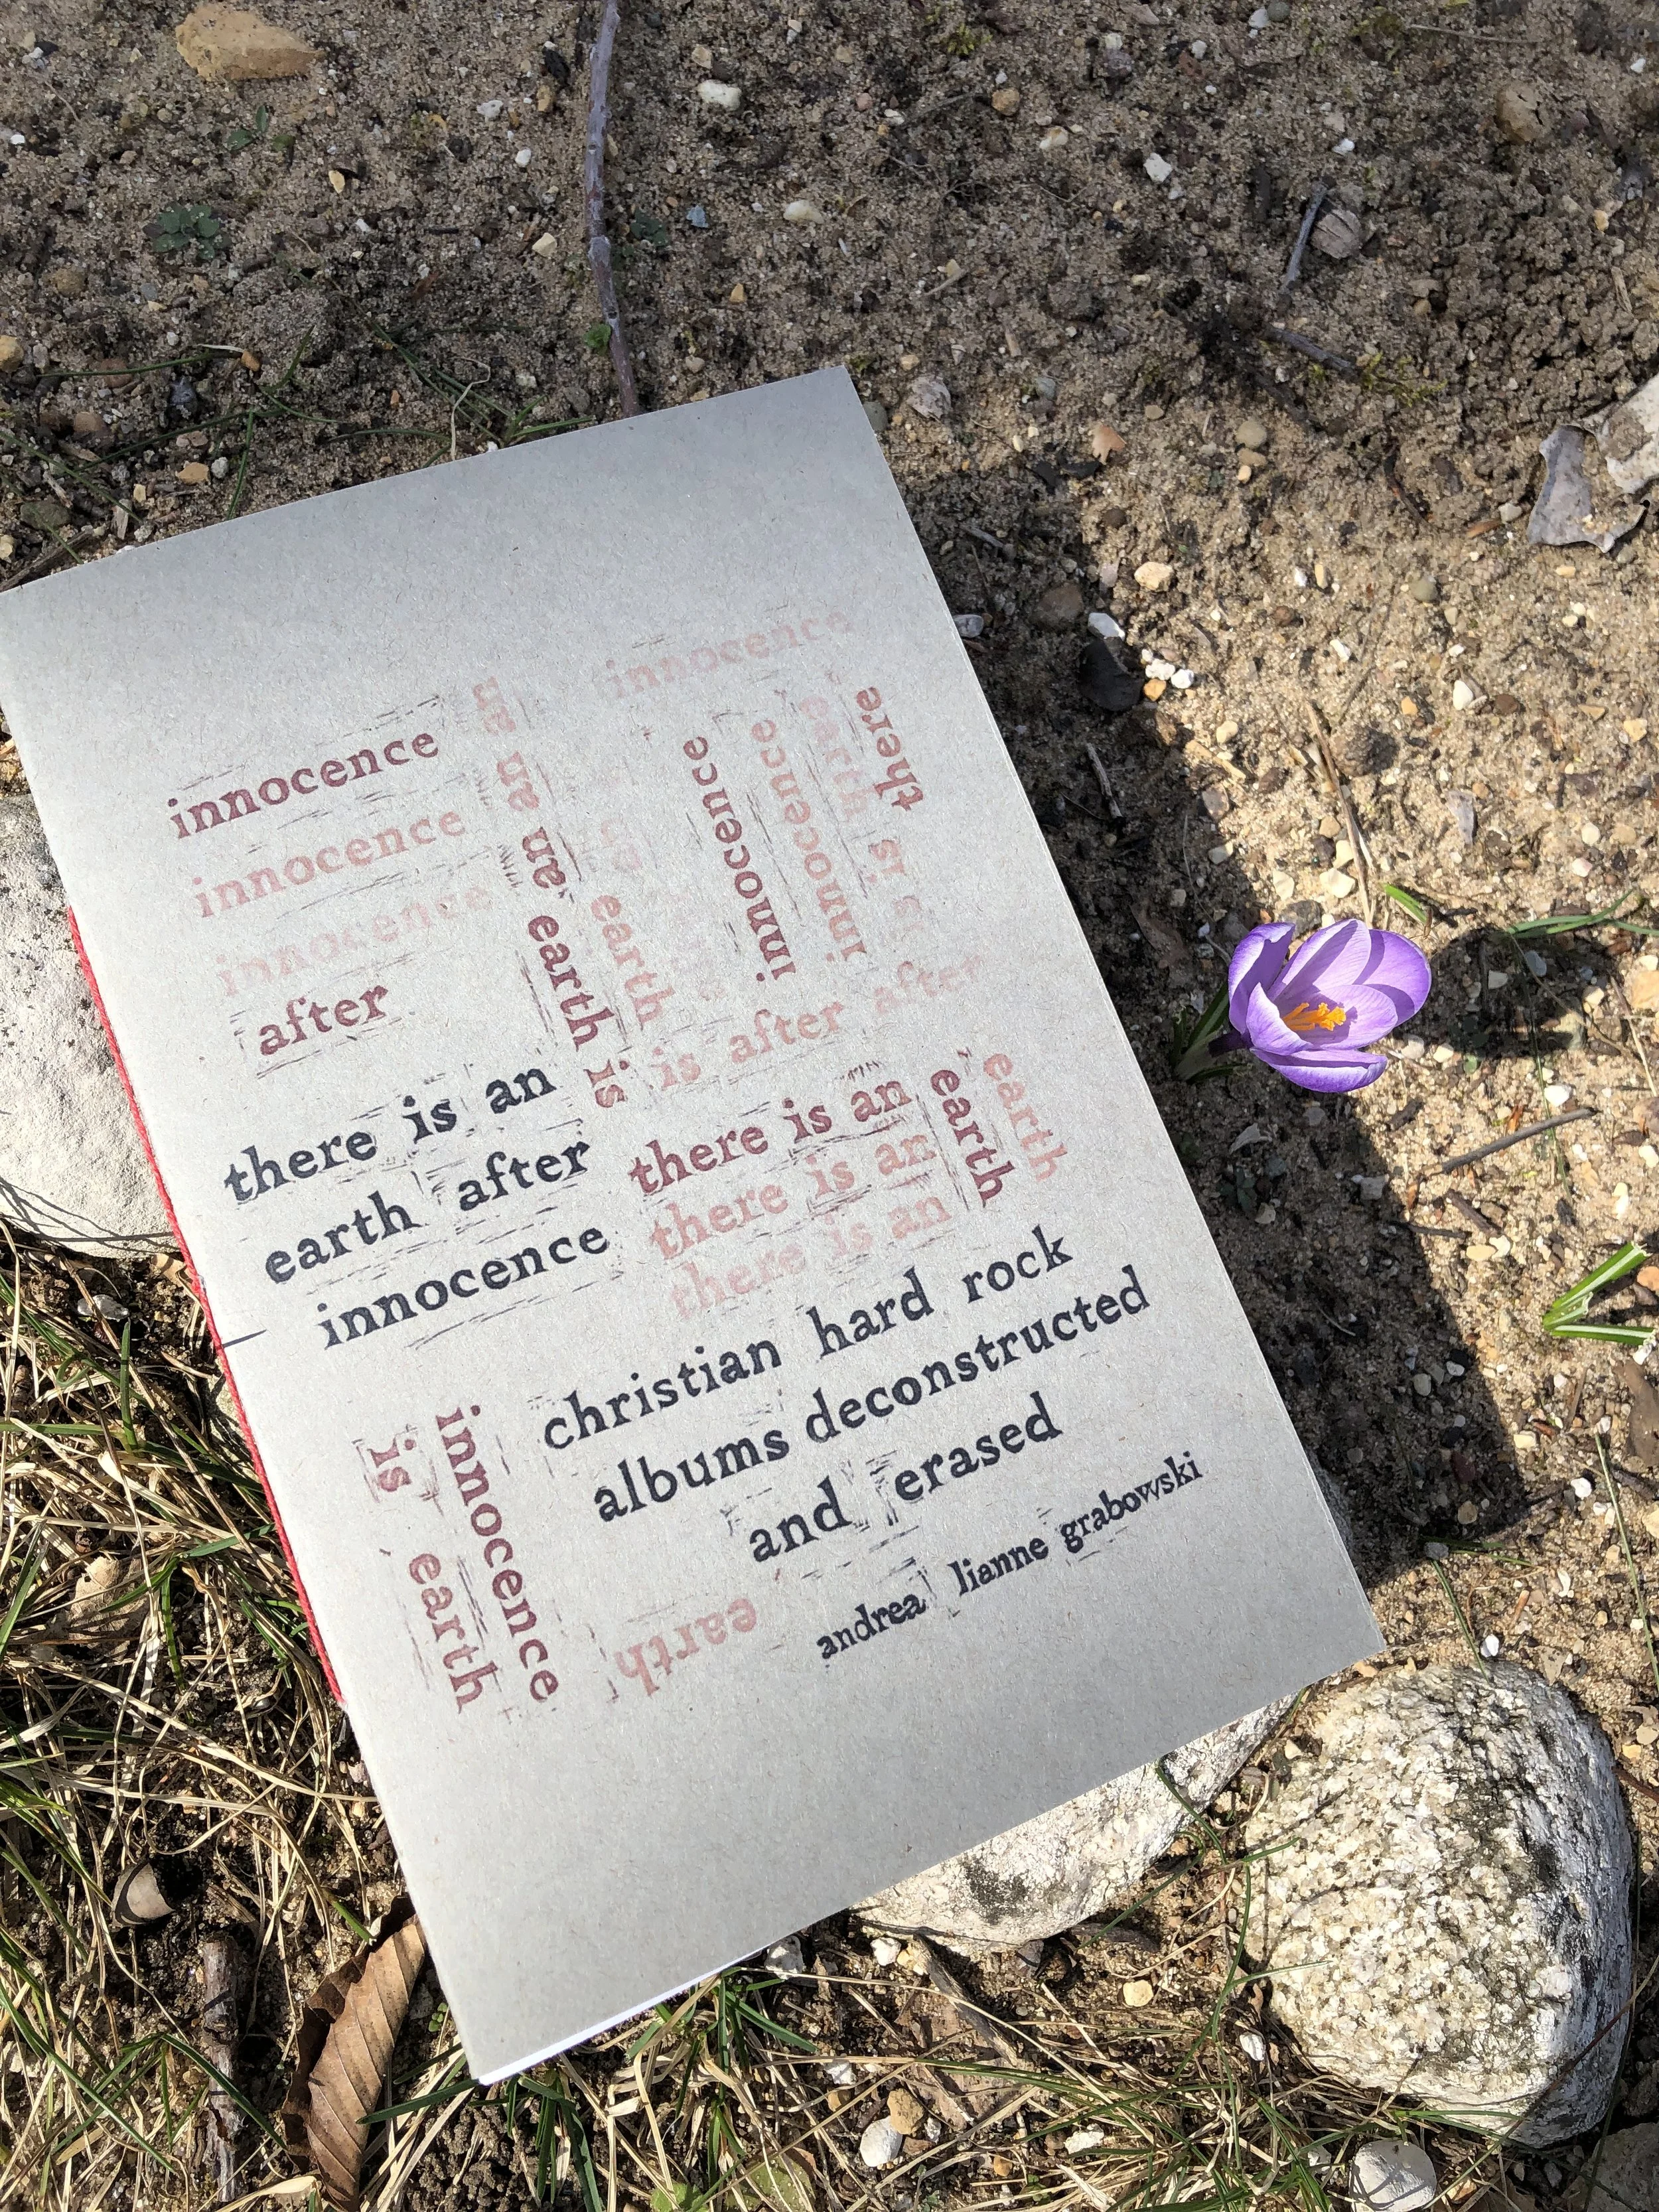 innocence
innocence
innocence
innocence
after
an
an
an
earth
is
earth
innocence
innocence
earth
there
is
is after after
there is an
earth after
innocence
there is an
there is an
there is an
earth
earth
christian hard rock
albums deconstructed
and erased
andrea lianne grabowski
is
earth
innocence
earth